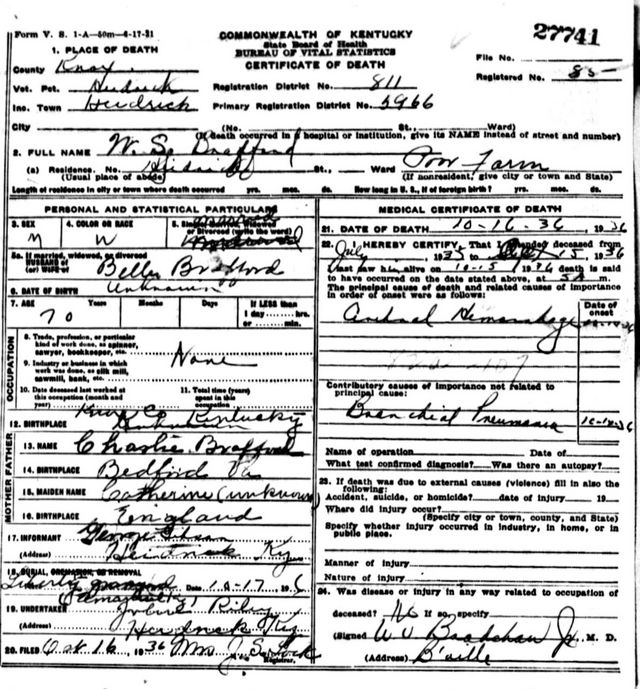 Form V. S. 1-A—50m—4-17-31
COMMONWEALTH OF KENTUCKY
State Board of Health
BUREAU OF VITAL STATISTICS
CERTIFICATE OF DEATH
27741
1. PLACE OF DEATH
County Knox
File No.
Registered No. 85
Vot. Pct. Heidrick
Registration District No. 811
Inc. Town Heidrick
Primary Registration District No. 5966
City (No. St., Ward)
(If death occurred in a hospital or institution, give its NAME instead of street and number)
2. FULL NAME W. S. Brafford
(a) Residence. No. Heidrick St., Ward Poor Farm
(Usual place of abode) (If nonresident, give city or town and State)
Length of residence in city or town where death occurred yrs. mos. ds. How long in U. S., if of foreign birth? yrs. mos. ds.
PERSONAL AND STATISTICAL PARTICULARS
3. SEX
M
4. COLOR OR RACE
W
5. Single, Married, Widowed
or Divorced (write the word)
5a. If married, widowed, or divorced
HUSBAND of
(or) WIFE of
Bell Brafford
6. DATE OF BIRTH unknown
7. AGE Years Months Days If LESS than
1 day hrs.
or min.
70
OCCUPATION
8. Trade, profession, or particular
kind of work done, as spinner,
sawyer, bookkeeper, etc.
None
9. Industry or business in which
work was done, as silk mill,
sawmill, bank, etc.
10. Date deceased last worked at
this occupation (month and
year)
11. Total time (years)
spent in this
occupation
12. BIRTHPLACE Knox Co Kentucky
MOTHER FATHER
13. NAME Charlie Brafford
14. BIRTHPLACE Bedford Va
15. MAIDEN NAME Catherine (unknown)
16. BIRTHPLACE England
17. INFORMANT George
(Address) Ky
18. BURIAL, CREMATION, OR REMOVAL
Liberty Date 10-17 1936
19. UNDERTAKER Riley
(Address) Heidrick Ky
20. FILED Oct 16 1936 Mrs J. S.
Registrar.
MEDICAL CERTIFICATE OF DEATH
21. DATE OF DEATH 10-16-36, 1936
22. I HEREBY CERTIFY, That I attended deceased from
July 1935 to 15, 1936
I last saw him alive on 10-15 1936 death is said
to have occurred on the date stated above, at
The principal cause of death and related causes of importance
in order of onset were as follows:
Date of
onset
Hemorrhage
Contributory causes of importance not related to
principal cause:
Bronchial Pneumonia
Name of operation Date of
What test confirmed diagnosis? Was there an autopsy?
23. If death was due to external causes (violence) fill in also the
following:
Accident, suicide, or homicide? date of injury 19
Where did injury occur?
(Specify city or town, county, and State)
Specify whether injury occurred in industry, in home, or in
public place.
Manner of injury
Nature of injury
24. Was disease or injury in any way related to occupation of
deceased? No If so, specify
(Signed W V Bradshaw Jr M. D.
(Address) B'ville